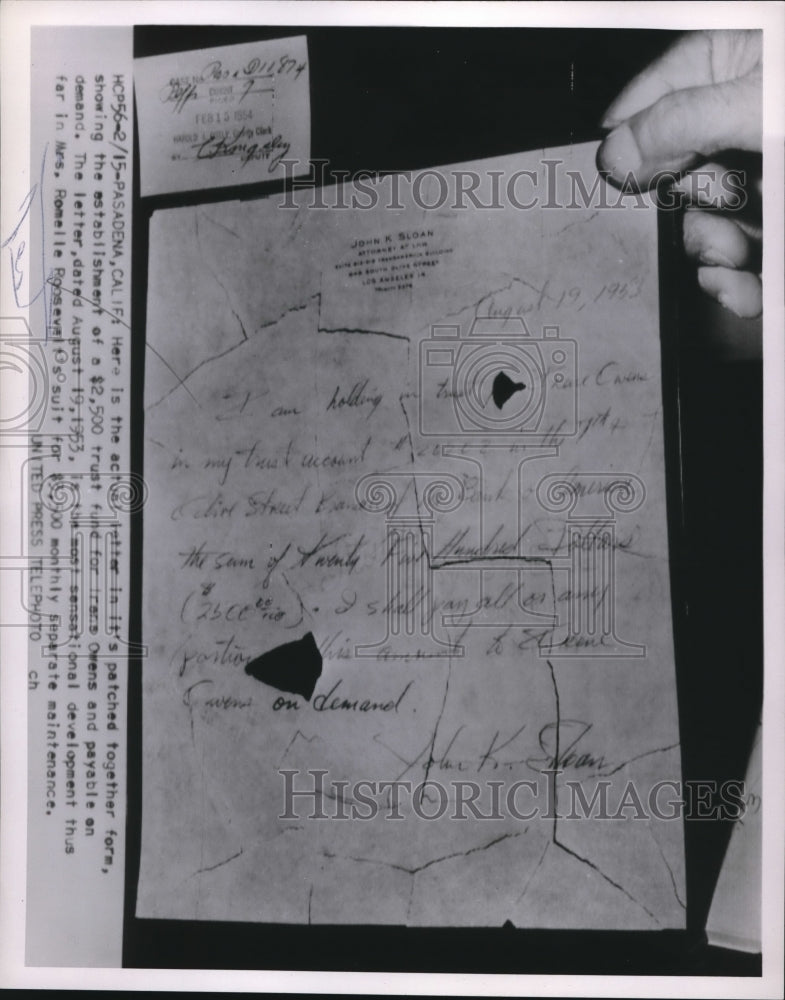 HCP56-2/15-PASADENA,CALIF: Here is the actual letter in it's patched together form,
showing the establishment of a $2,500 trust fund for Irene Owens and payable on
demand. The letter,dated August 19,1953, is the most sensational development thus
far in Mrs. Romelle Roosevelt's suit for $3,500 monthly separate maintenance.
UNITED PRESS TELEPHOTO ch
CASE No. Pasa D11874
Plff
EXHIBIT
FILED
FEB 15 1954
HAROLD J. County Clerk
BY DEPUTY
JOHN K SLOAN
ATTORNEY AT LAW
TRANSAMERICA BUILDING
SOUTH OLIVE STREET
LOS ANGELES 14
August 19, 1953
I am holding in trust Irene Owens
in my trust account in the 7th &
Olive Street Branch of Bank of America
the sum of Twenty Five Hundred Dollars
($2500 00/100). I shall pay all or any
portion this amount to Irene
Owens on demand.
John K. Sloan
HISTORIC IMAGES
HISTORIC IMAGES